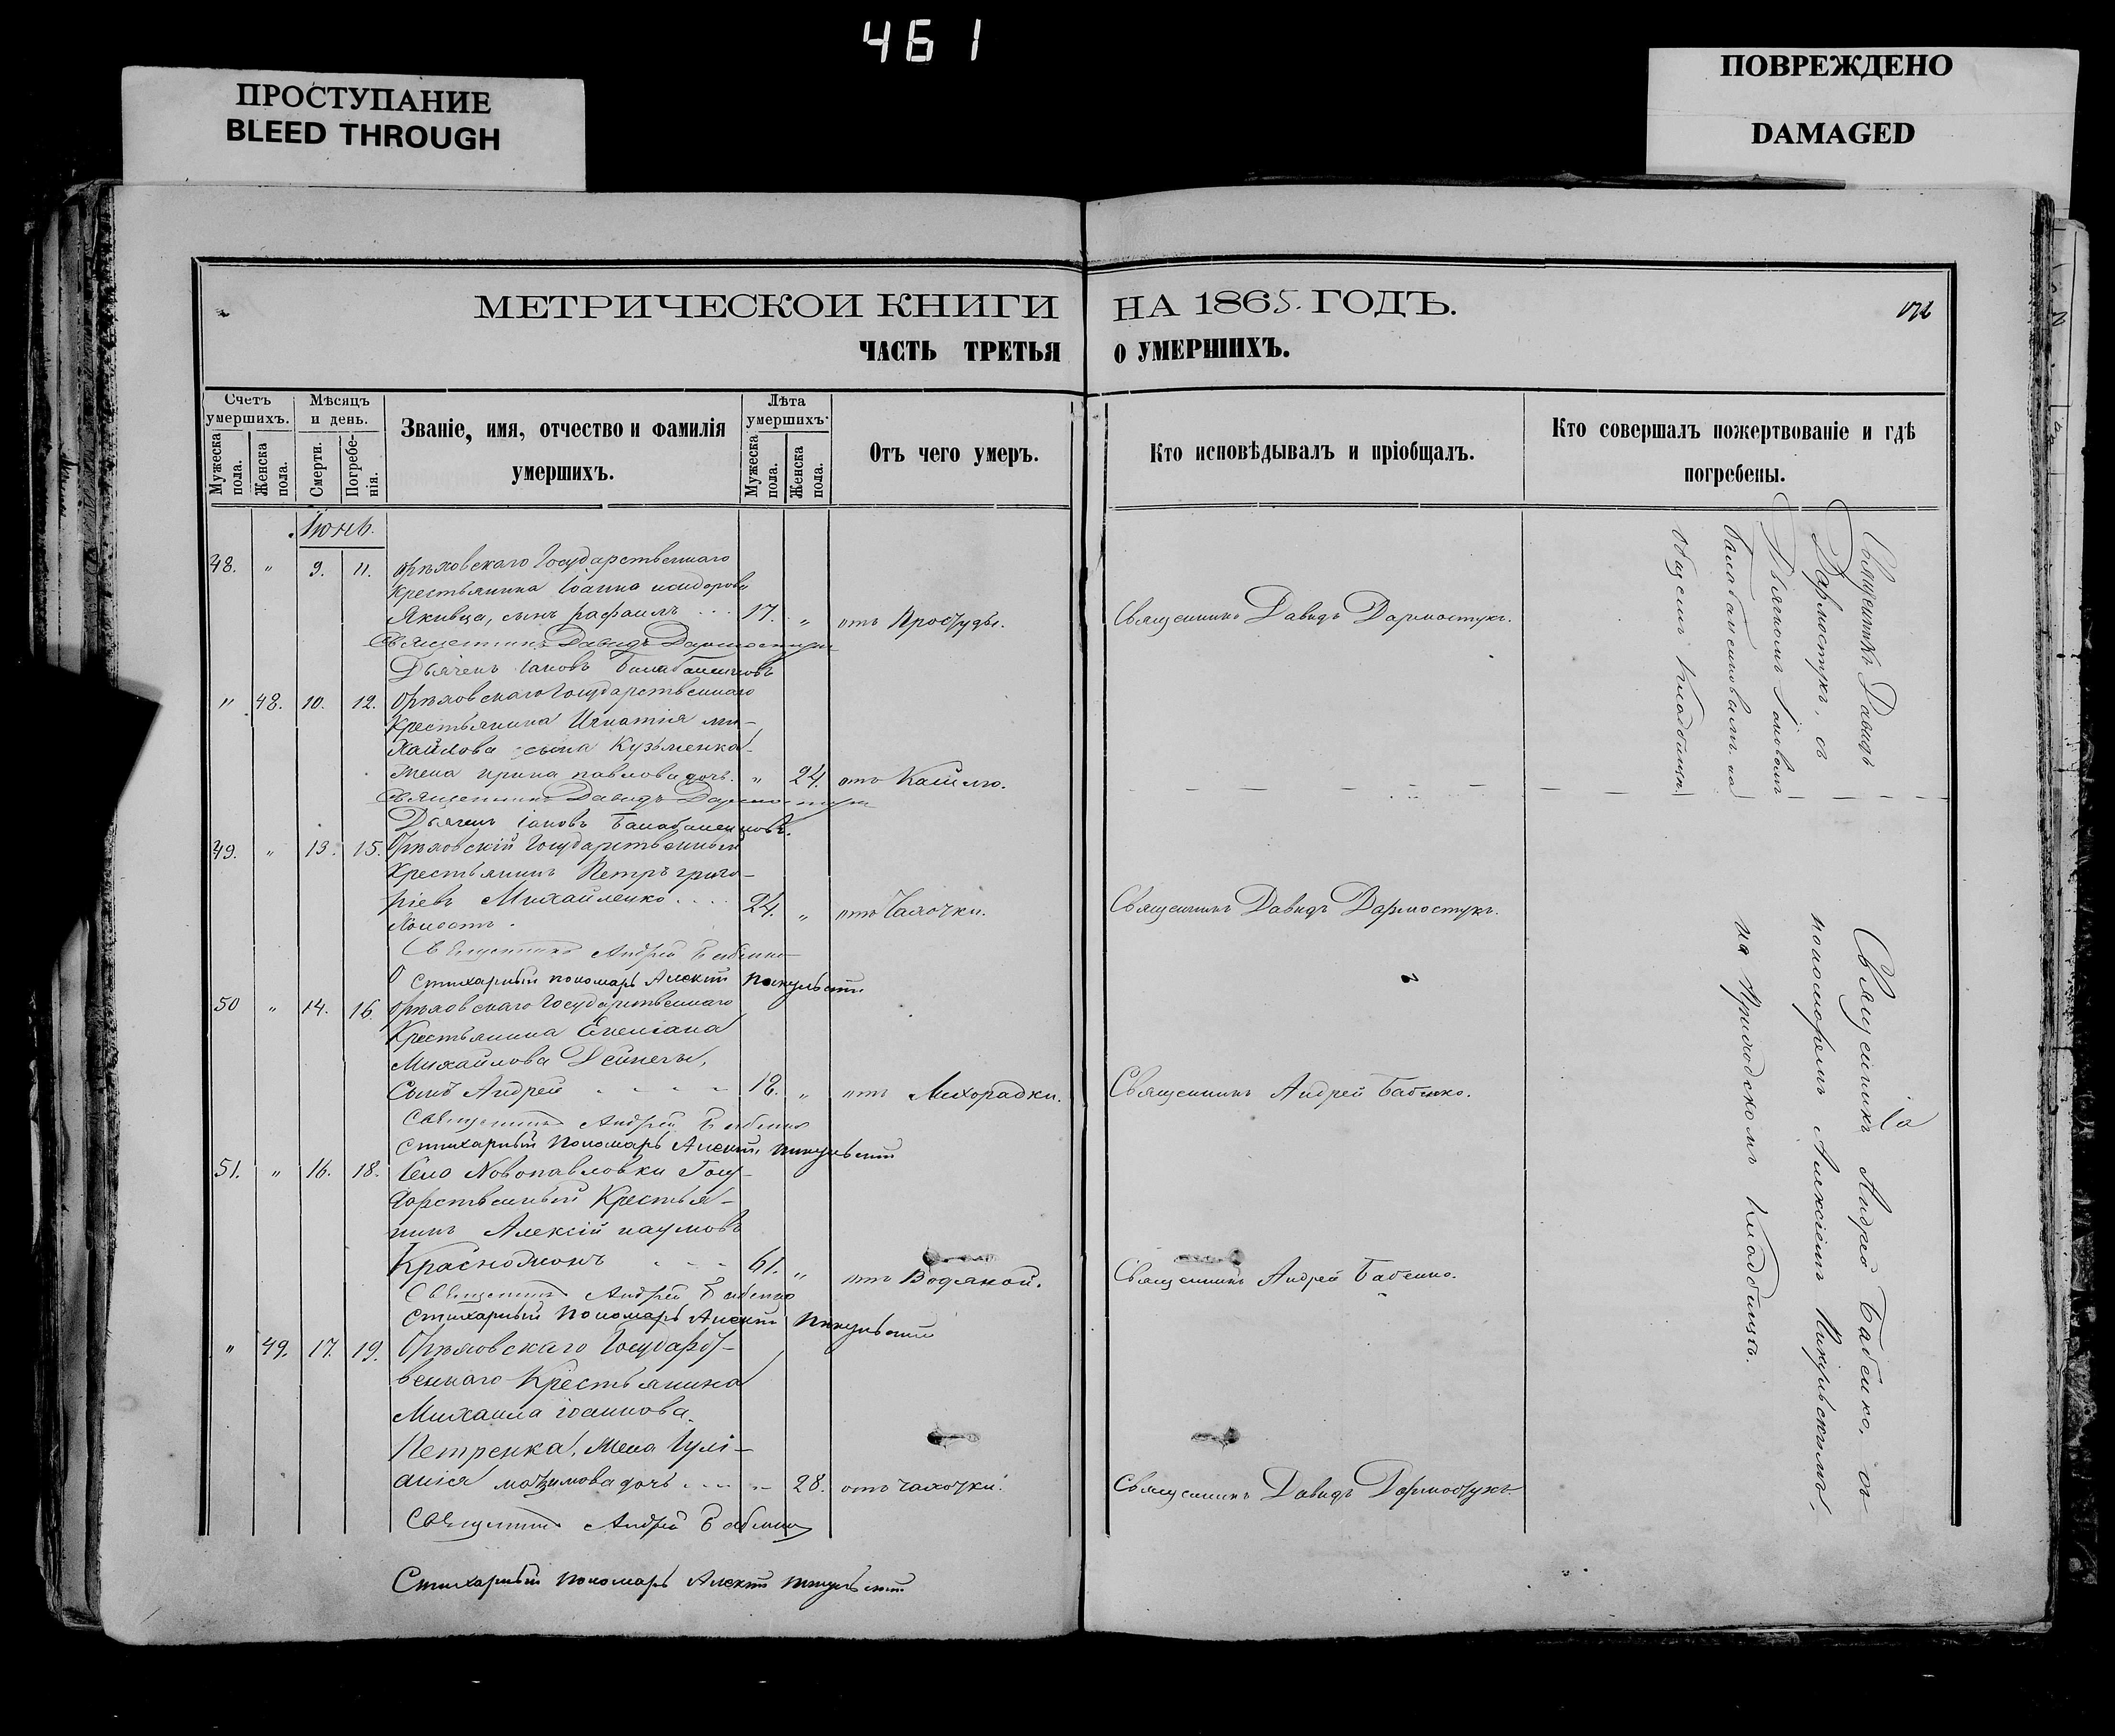 461
ПРОСТУПАНИЕ
BLEED THROUGH
ПОВРЕЖДЕНО
DAMAGED
МЕТРИЧЕСКОЙ КНИГИ НА 1865. ГОДЪ.
ЧАСТЬ ТРЕТЬЯ О УМЕРШИХЪ.
Счетъ умершихъ.
Мужеска пола.
Женска пола.
Мѣсяцъ и день.
Смерти.
Погребенія.
Званіе, имя, отчество и фамилія умершихъ.
Лѣта умершихъ
Мужеска пола.
Женска пола.
Отъ чего умеръ.
Кто исповѣдывалъ и пріобщалъ.
Кто совершалъ пожертвованіе и гдѣ погребены.
Іюнь.
48. " 9. 11. Орѣховскаго Государственнаго
Крестьянина Іоанна исидорова
Якивца, сынъ рафаилъ 17. " отъ Простуды. Священникъ Давидъ Дармостукъ.
Священникъ Давидъ Дармостукъ
Дьячекъ Іаковъ
" 48. 10. 12. Орѣховскаго Государственнаго
Крестьянина Игнатія ми-
хайлова сына Кузьменка
жена ирина павлова дочь. " 24. отъ Кашлю.
Священникъ Давидъ Дармостукъ
Дьячекъ Іаковъ
49. " 13. 15. Орѣховскій Государственный
Крестьянинъ Петръ григо-
ріевъ Михайленко 24. " отъ Чахотки. Священникъ Давидъ Дармостукъ.
Холостъ.
Священникъ Андрей Бабенко
Стихарный пономарь Алексій Пикульскій
50 " 14. 16. Орѣховскаго Государственнаго
Крестьянина
Михайлова Дейнеги,
Сынъ Андрей 18. " отъ Лихорадки. Священникъ Андрей Бабенко.
Священникъ Андрей Бабенко
Стихарный Пономарь Алексій Пикульскій
51. " 16. 18. Села Новопавловки Госу-
дарственный Крестья-
нинъ Алексій наумовъ
61. " отъ Водяной. Священникъ Андрей Бабенко.
Священникъ Андрей Бабенко
Стихарный Пономарь Алексій Пикульскій
" 49. 17. 19. Орѣховскаго Государст-
веннаго Крестьянина
Михаила іоаннова
Петренка, жена Іулі-
анія дочь " 28. отъ чахотки. Священникъ Давидъ Дармостукъ.
Священникъ Андрей Бабенко
Стихарный Пономарь Алексій Пикульскій
Священникъ Давидъ
Дармостукъ, съ
Дьячкомъ
на
общемъ кладбищѣ.
Священникъ Андрей Бабенко, съ
пономаремъ Алексіемъ Пикульскимъ,
на Приходскомъ кладбищѣ.